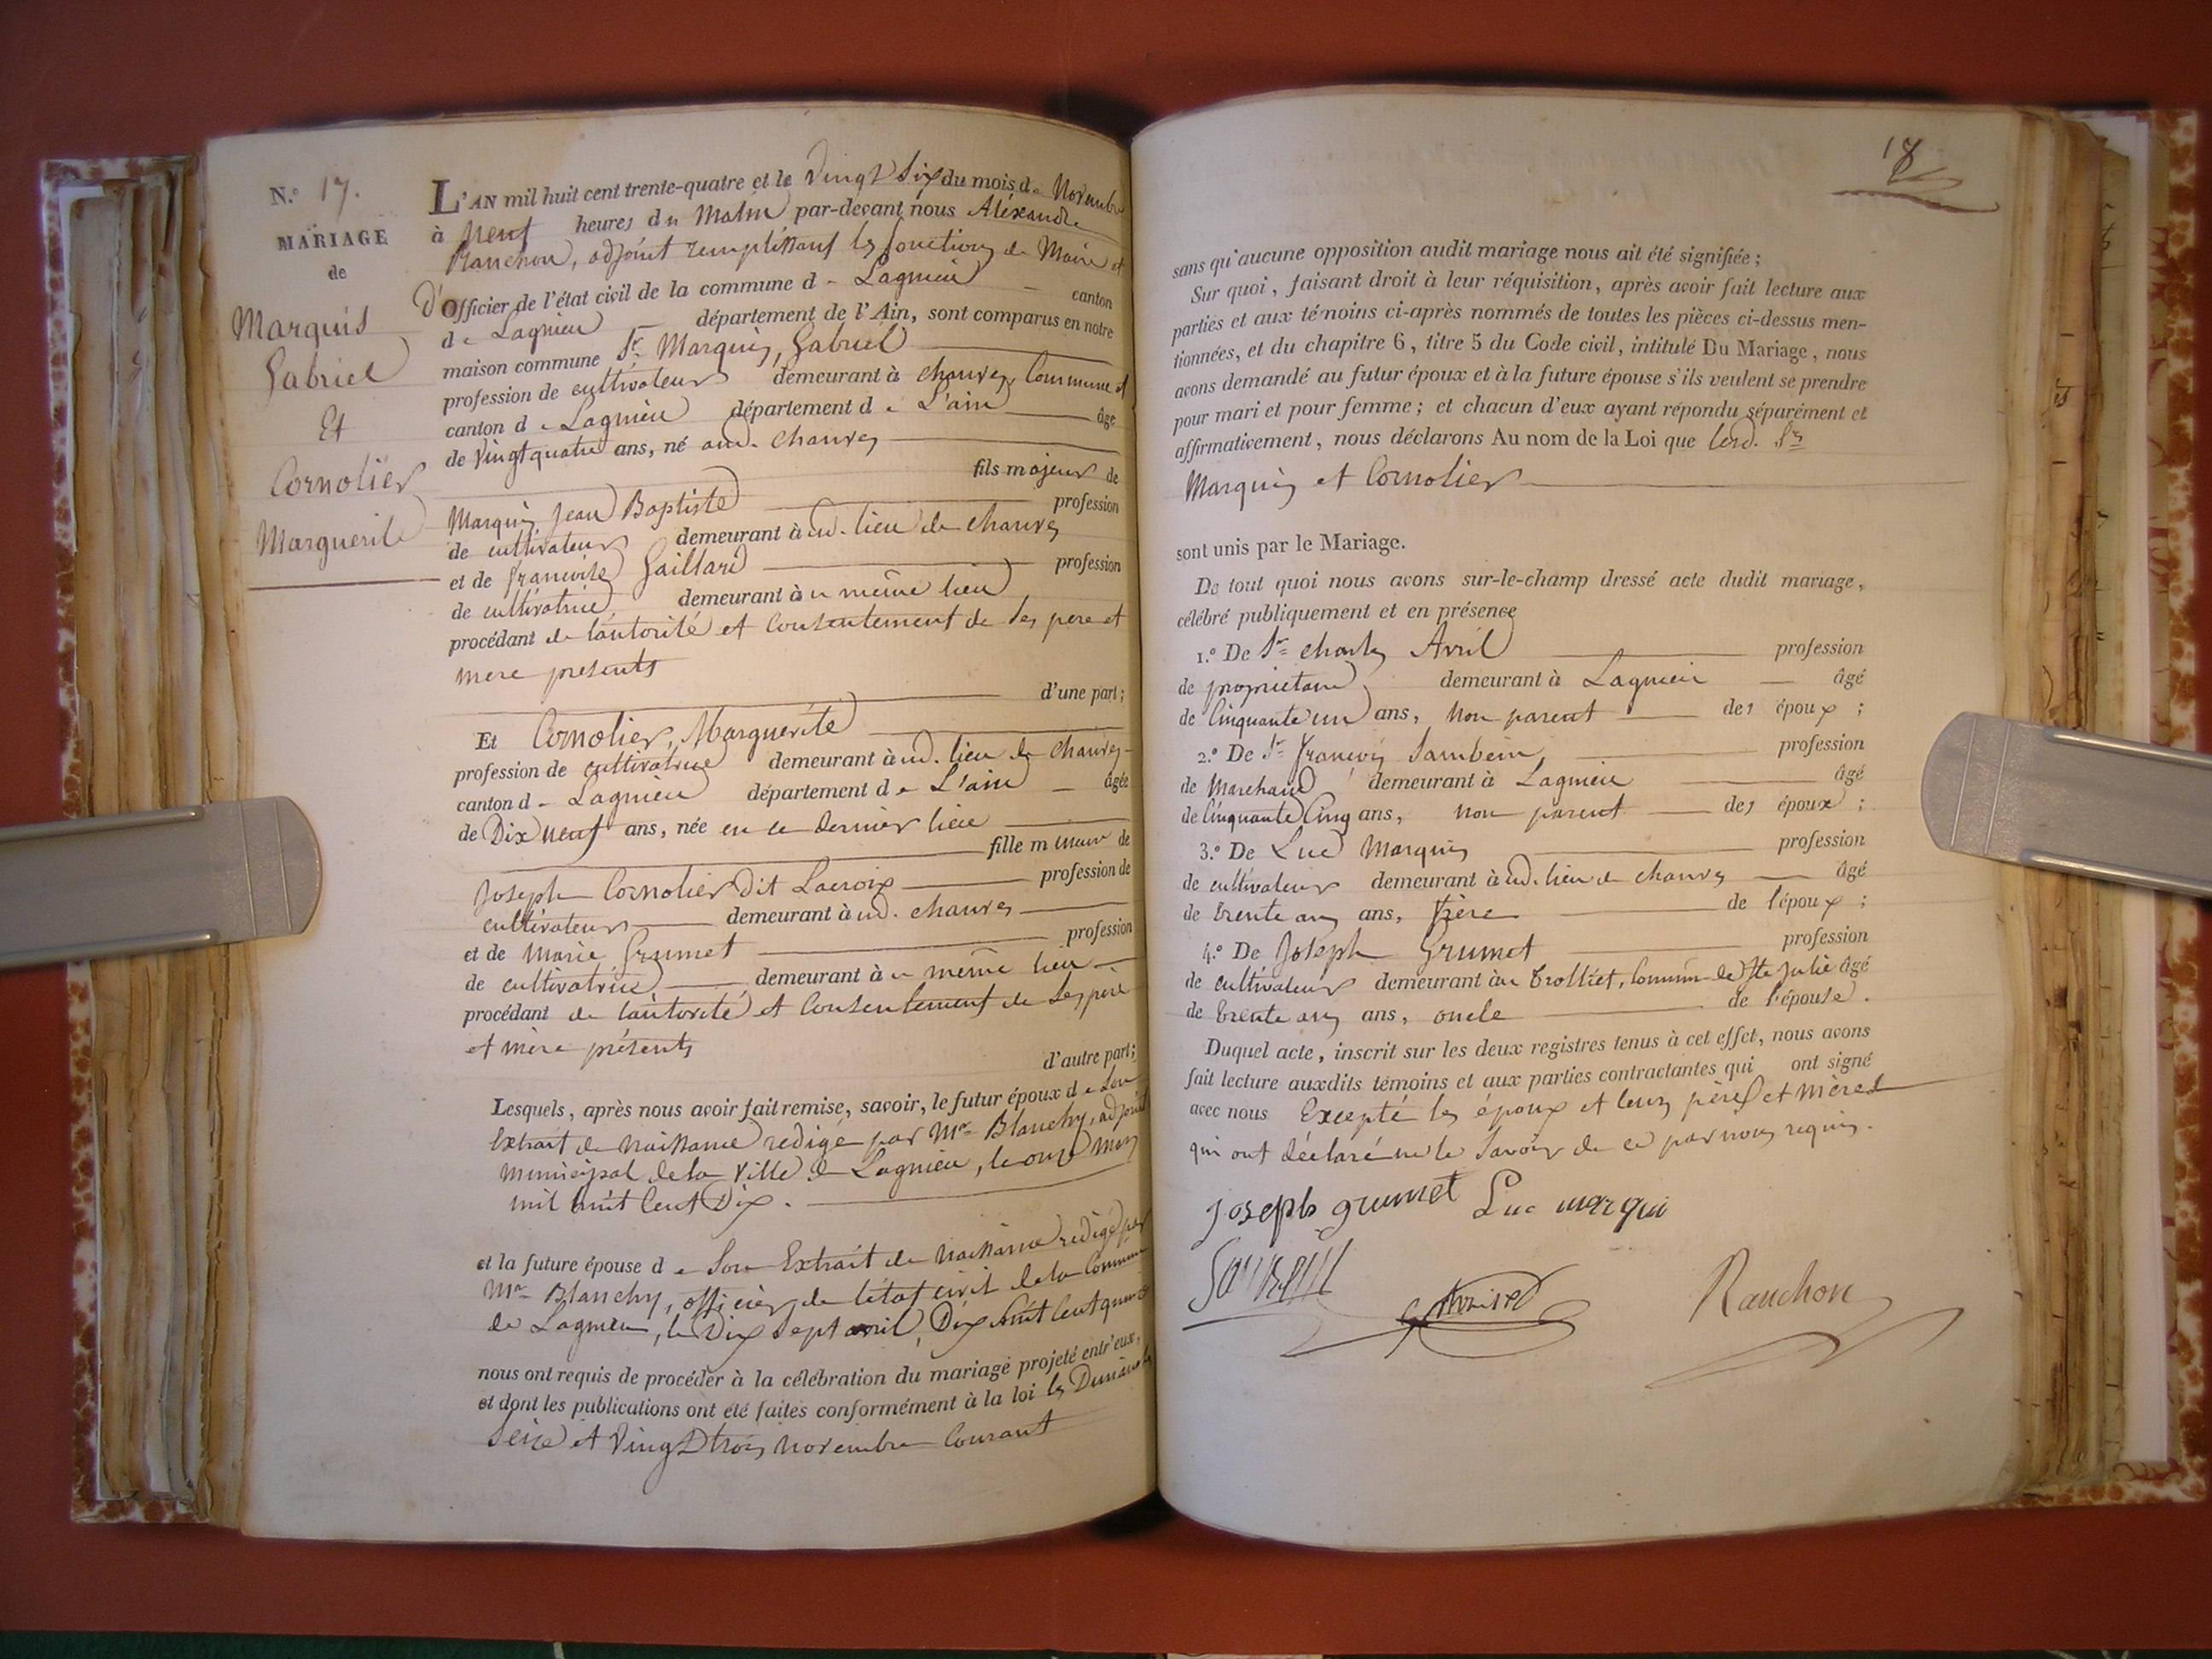 N.º 17.
MARIAGE
de
Marquis
Gabriel
Et
Cornolier
Marguerite
L'AN mil huit cent trente-quatre et le Vingt Six du mois de Novembre
à Neuf heures du Matin par-devant nous Aléxandre
Ranchon, adjoint remplissant les fonctions de Maire et
d'Officier de l'état civil de la commune de Lagnieu canton
de Lagnieu département de l'Ain, sont comparus en notre
maison commune Sr. Marquis, Gabriel
profession de cultivateur demeurant à chanves Commune et
canton de Lagnieu département de L'ain âgé
de Vingt quatre ans, né aud. chanves
fils majeur de
Marquis Jean Baptiste profession
de cultivateur demeurant à ud. lieu de chanves
et de francoise Gaillard profession
de cultivatrice demeurant à u même lieu
procédant de l'autorité et Consentement de ses pere et
mere présents
d'une part;
Et Cornolier, Marguerite
profession de cultivatrice demeurant à ud. lieu de chanves
canton de Lagnieu département de L'ain âgée
de Dix Neuf ans, née en ce dernier lieu
fille mineure de
Joseph Cornolier Dit Lacroix profession de
cultivateur demeurant à ud. chanves
et de Marie Grumet profession
de cultivatrice demeurant à u même lieu
procédant de l'autorité et Consentement de ses père
et mère présents
d'autre part;
Lesquels, après nous avoir fait remise, savoir, le futur époux de Son
Extrait de Naissance redigé par Mr. Blanchy, adjoint
municipal de la Ville de Lagnieu, le onze Mars
mil huit Cent Dix.
et la future épouse de Son Extrait de Naissance redigé par
Mr. Blanchy, officier de l'état civil de la Commune
de Lagnieu, le Dix Sept avril, Dix huit Cent quinze
nous ont requis de procéder à la célébration du mariage projeté entr'eux,
et dont les publications ont été faites conformément à la loi les Dimanches
Seize et Vingt trois novembre Courant
18
sans qu'aucune opposition audit mariage nous ait été signifiée;
Sur quoi, faisant droit à leur réquisition, après avoir fait lecture aux
parties et aux témoins ci-après nommés de toutes les pièces ci-dessus men-
tionnées, et du chapitre 6, titre 5 du Code civil, intitulé Du Mariage, nous
avons demandé au futur époux et à la future épouse s'ils veulent se prendre
pour mari et pour femme; et chacun d'eux ayant répondu séparément et
affirmativement, nous déclarons Au nom de la Loi que lesd. Srs
Marquis et Cornolier
sont unis par le Mariage.
De tout quoi nous avons sur-le-champ dressé acte dudit mariage,
célébré publiquement et en présence
1.º De Sr. charles Avril profession
de proprietaire demeurant à Lagnieu âgé
de Cinquante un ans, Non parent des époux;
2.º De Sr. françois Sambein profession
de Marchand demeurant à Lagnieu âgé
de Cinquante Cinq ans, Non parent des époux;
3.º De Luc Marquis profession
de cultivateur demeurant à ud. lieu de chanves âgé
de trente ans ans, frère de l'époux;
4.º De Joseph Grumet profession
de cultivateur demeurant àu trolliet, Commune de Ste Julie âgé
de trente ans ans, oncle de l'épouse.
Duquel acte, inscrit sur les deux registres tenus à cet effet, nous avons
fait lecture auxdits témoins et aux parties contractantes qui ont signé
avec nous Excepté les époux et leurs pères et mères
qui ont déclaré ne le Savoir de ce par nous requis.
Joseph grumet Luc marqui
Ranchon